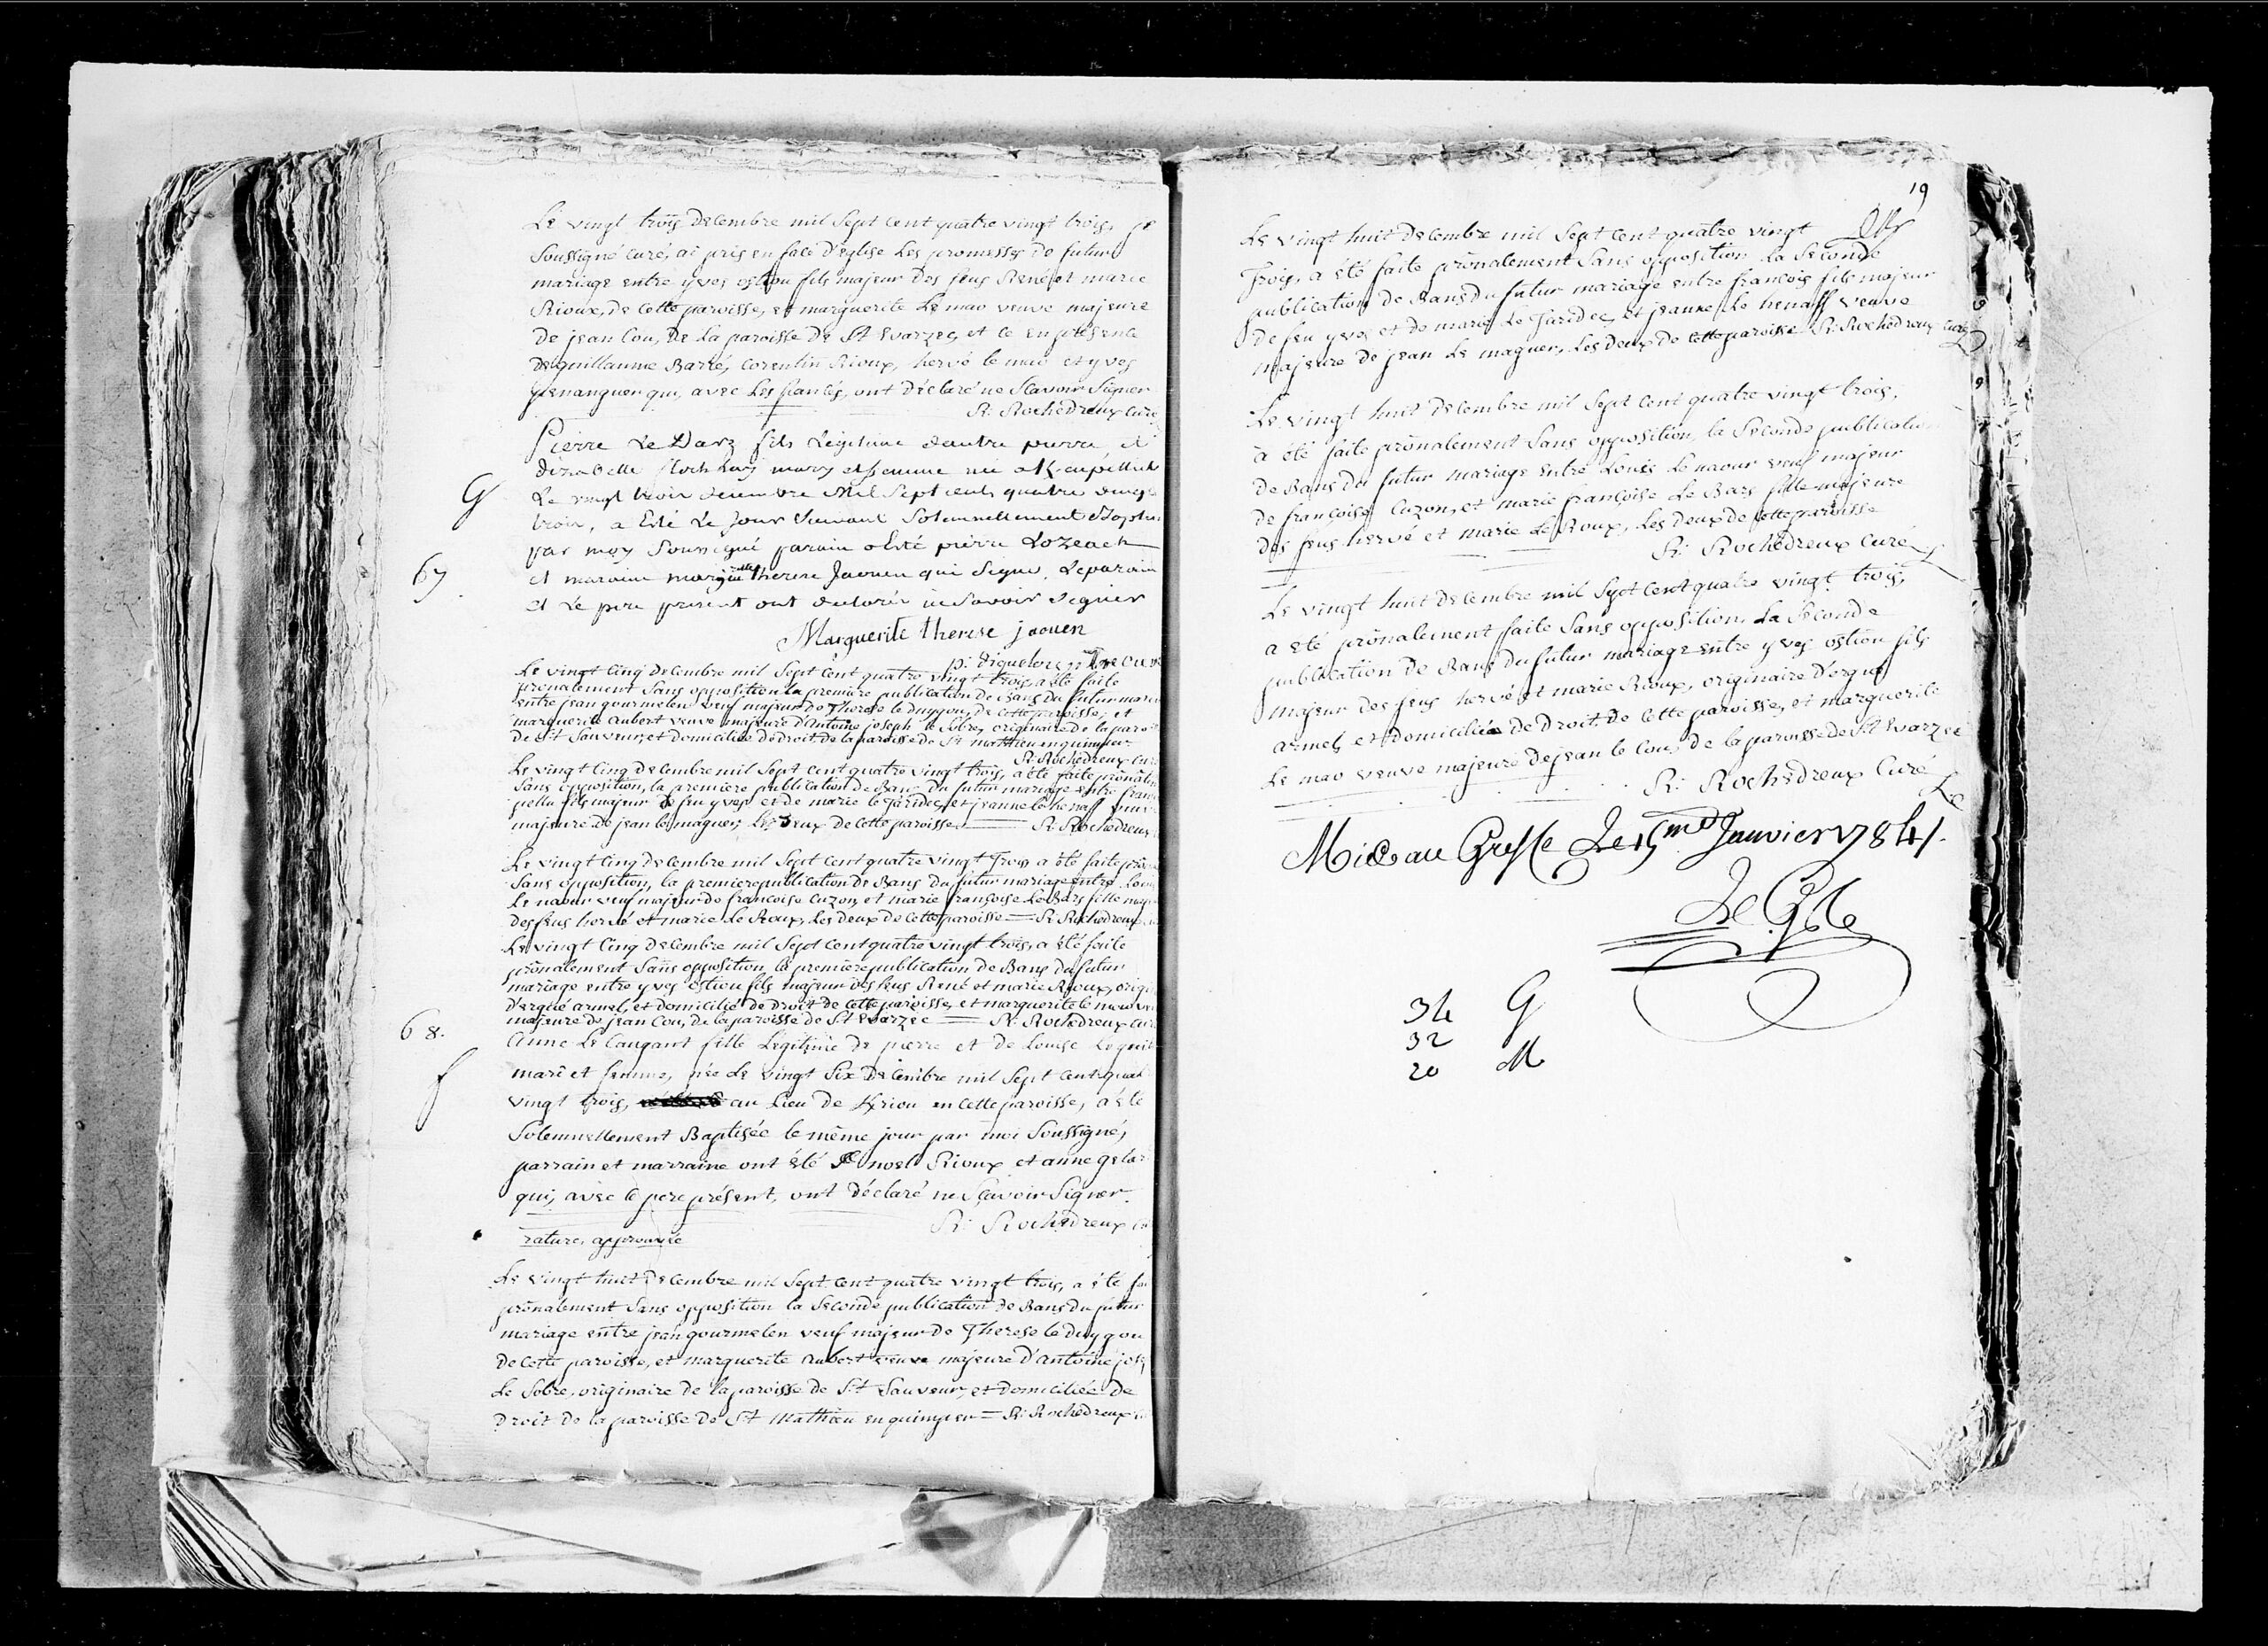 Le vingt trois decembre mil sept cent quatre vingt trois, je
soussigné curé, ai pris en face d'eglise les promesses de futur
mariage entre yves ostiou fils majeur des feus René et marie
Rioux, de cette paroisse, et marguerite le mao veuve majeure
de jean Cou, de la paroisse de St Evarzec, et ce en présence
de guillaume Barré, Corentin Rioux, hervé le mao et yves
qui, avec les fiancés, ont déclaré ne sçavoir signer
R: Rochedreux curé
Pierre Le Darz fils Légitime dautre pierre et
dizabelle floch Leurs mary et femme né a
G
Le vingt trois decembre Mil sept cents quatre vingt
trois, a Esté Le jour suivant solemnellement Baptisé
par moy soussigné parain a Esté pierre Lozeach
67
et maraine margtte therese Jaouen qui signe, Leparain
et Le pere present ont declarés ne savoir signer
Marguerite therese jaouen
Le vingt cinq decembre mil sept cent quatre vingt trois, a été faite
prônalement sans opposition la premiere publication de Bans du futur mariage
entre jean gourmelen veuf majeur de Therese le duygou, de cette paroisse, et
marguerite aubert veuve majeure d'antoine joseph le sobre, originaire de la paroisse
de St Sauveur, et domiciliée de droit de la paroisse de St mathieu en quimper
R: Rochedreux curé
Le vingt cinq decembre mil sept cent quatre vingt trois, a été faite prônalement
sans opposition, la premiere publication de Bans du futur mariage entre françois
fils majeur de feu yves et de marie le faridec, et jeanne le henaff veuve
majeure de jean le maguer, les deux de cette paroisse R: Rochedreux
Le vingt cinq decembre mil sept cent quatre vingt trois a été faite prônalement
sans opposition, la premiere publication de Bans du futur mariage entre Louis
Le naour veuf majeur de françoise Cuzon, et marie françoise Le Bars fille majeure
des feus hervé et marie Le Roux, les deux de cette paroisse = R: Rochedreux
Le vingt cinq decembre mil sept cent quatre vingt trois, a été faite
prônalement sans opposition, la premiere publication de Bans du futur
mariage entre yves ostiou fils majeur des feus René et marie Rioux, originaire
d'ergué armel, et domicilié de droit de cette paroisse, et marguerite le mao veuve
majeure de jean Cou, de la paroisse de St Evarzec = R: Rochedreux curé
68.
Anne Le Caugant fille Légitime de pierre et de Louise
f
mari et femme, née Le vingt six decembre mil sept cent quatre
vingt trois, au lieu de Kriou en cette paroisse, a été
solemnellement Baptisée le même jour par moi soussigné,
parrain et marraine ont été noel Rioux et anne
qui, avec le pere présent, ont déclaré ne sçavoir signer.
R: Rochedreux
rature, approuvée
Le vingt huit decembre mil sept cent quatre vingt trois, a été faite
prônalement sans opposition la seconde publication de Bans du futur
mariage entre jean gourmelen veuf majeur de Therese le duygou
de cette paroisse, et marguerite aubert veuve majeure d'antoine joseph
Le sobre, originaire de la paroisse de St Sauveur, et domiciliée de
droit de la paroisse de St Mathieu en quimper = R: Rochedreux
19
Le vingt huit decembre mil sept cent quatre vingt
trois, a été faite prônalement sans opposition la seconde
publication de Bans du futur mariage entre françois fils majeur
de feu yves et de marie Le faridec, et jeanne Le henaff veuve
majeure de jean Le maguer, Les deux de cette paroisse R: Rochedreux curé
Le vingt huit decembre mil sept cent quatre vingt trois,
a été faite prônalement sans opposition, la seconde publication
de Bans du futur mariage entre Louis Le naour veuf majeur
de françoise Cuzon, et marie françoise Le Bars fille majeure
des feus hervé et marie Le Roux, Les deux de cette paroisse
R: Rochedreux curé
Le vingt huit decembre mil sept cent quatre vingt trois,
a été prônalement faite sans opposition, la seconde
publication de Bans du futur mariage entre yves ostiou fils
majeur des feus hervé et marie Rioux, originaire d'ergué
armel, et domicilié de droit de cette paroisse, et marguerite
Le mao veuve majeure de jean le Cou, de la paroisse de St Evarzec
R: Rochedreux Curé
Mis au Greffe Le 15me Janvier 1784.
34 G
32
20 M